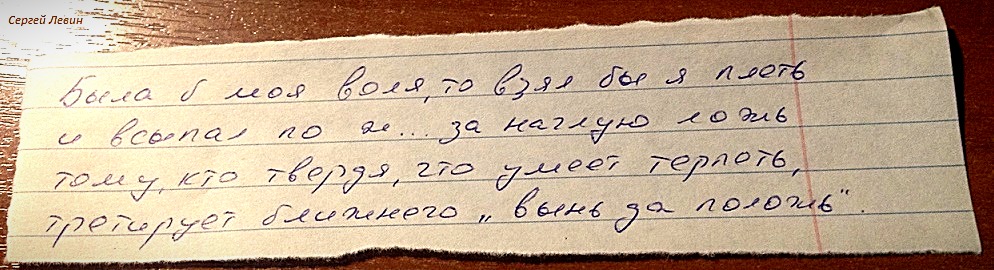 Сергей Левин
Была б моя воля, то взял бы я плеть
и всыпал по ж... за наглую ложь
тому, кто твердя, что умеет терпеть,
третирует ближнего „вынь да положь".